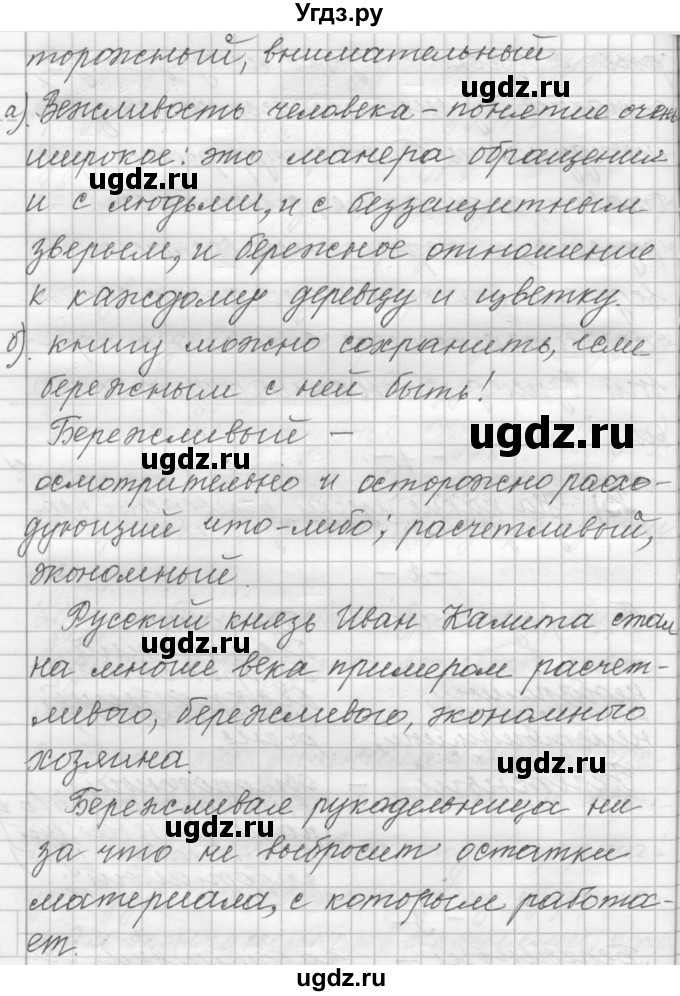 Угдз.ру
торожный, внимательный
а). Вежливость человека – понятие очень
широкое: это манера обращения
и с людьми, и с беззащитным
зверьем, и бережное отношение
к каждому деревцу и цветку.
б). книгу можно сохранить, если
бережным с ней быть!
Бережливый –
осмотрительно и осторожно расхо-
дующий что-либо; расчетливый,
экономный.
Русский князь Иван Калита стал
на многие века примером расчет-
ливого, бережливого, экономного
хозяина.
Бережливая рукодельница ни
за что не выбросит остатки
материала, с которым работа-
ет.
ugdz.ru
ugdz.ru
ugdz.ru
ugdz.ru
ugdz.ru
ugdz.ru
ugdz.ru
ugdz.ru